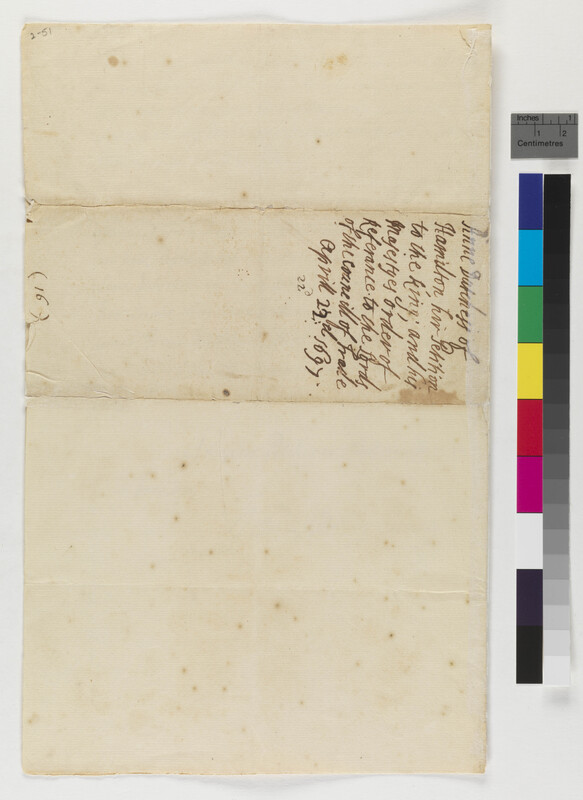 2-51
Anne Dutchess of
Hamilton, her Petition
to the King, and his
Majestyes order of
Referance to the Lords
of the Councill of Trade
April 22d 1697.
22d
(16)
Inches 1
1 2
Centimetres